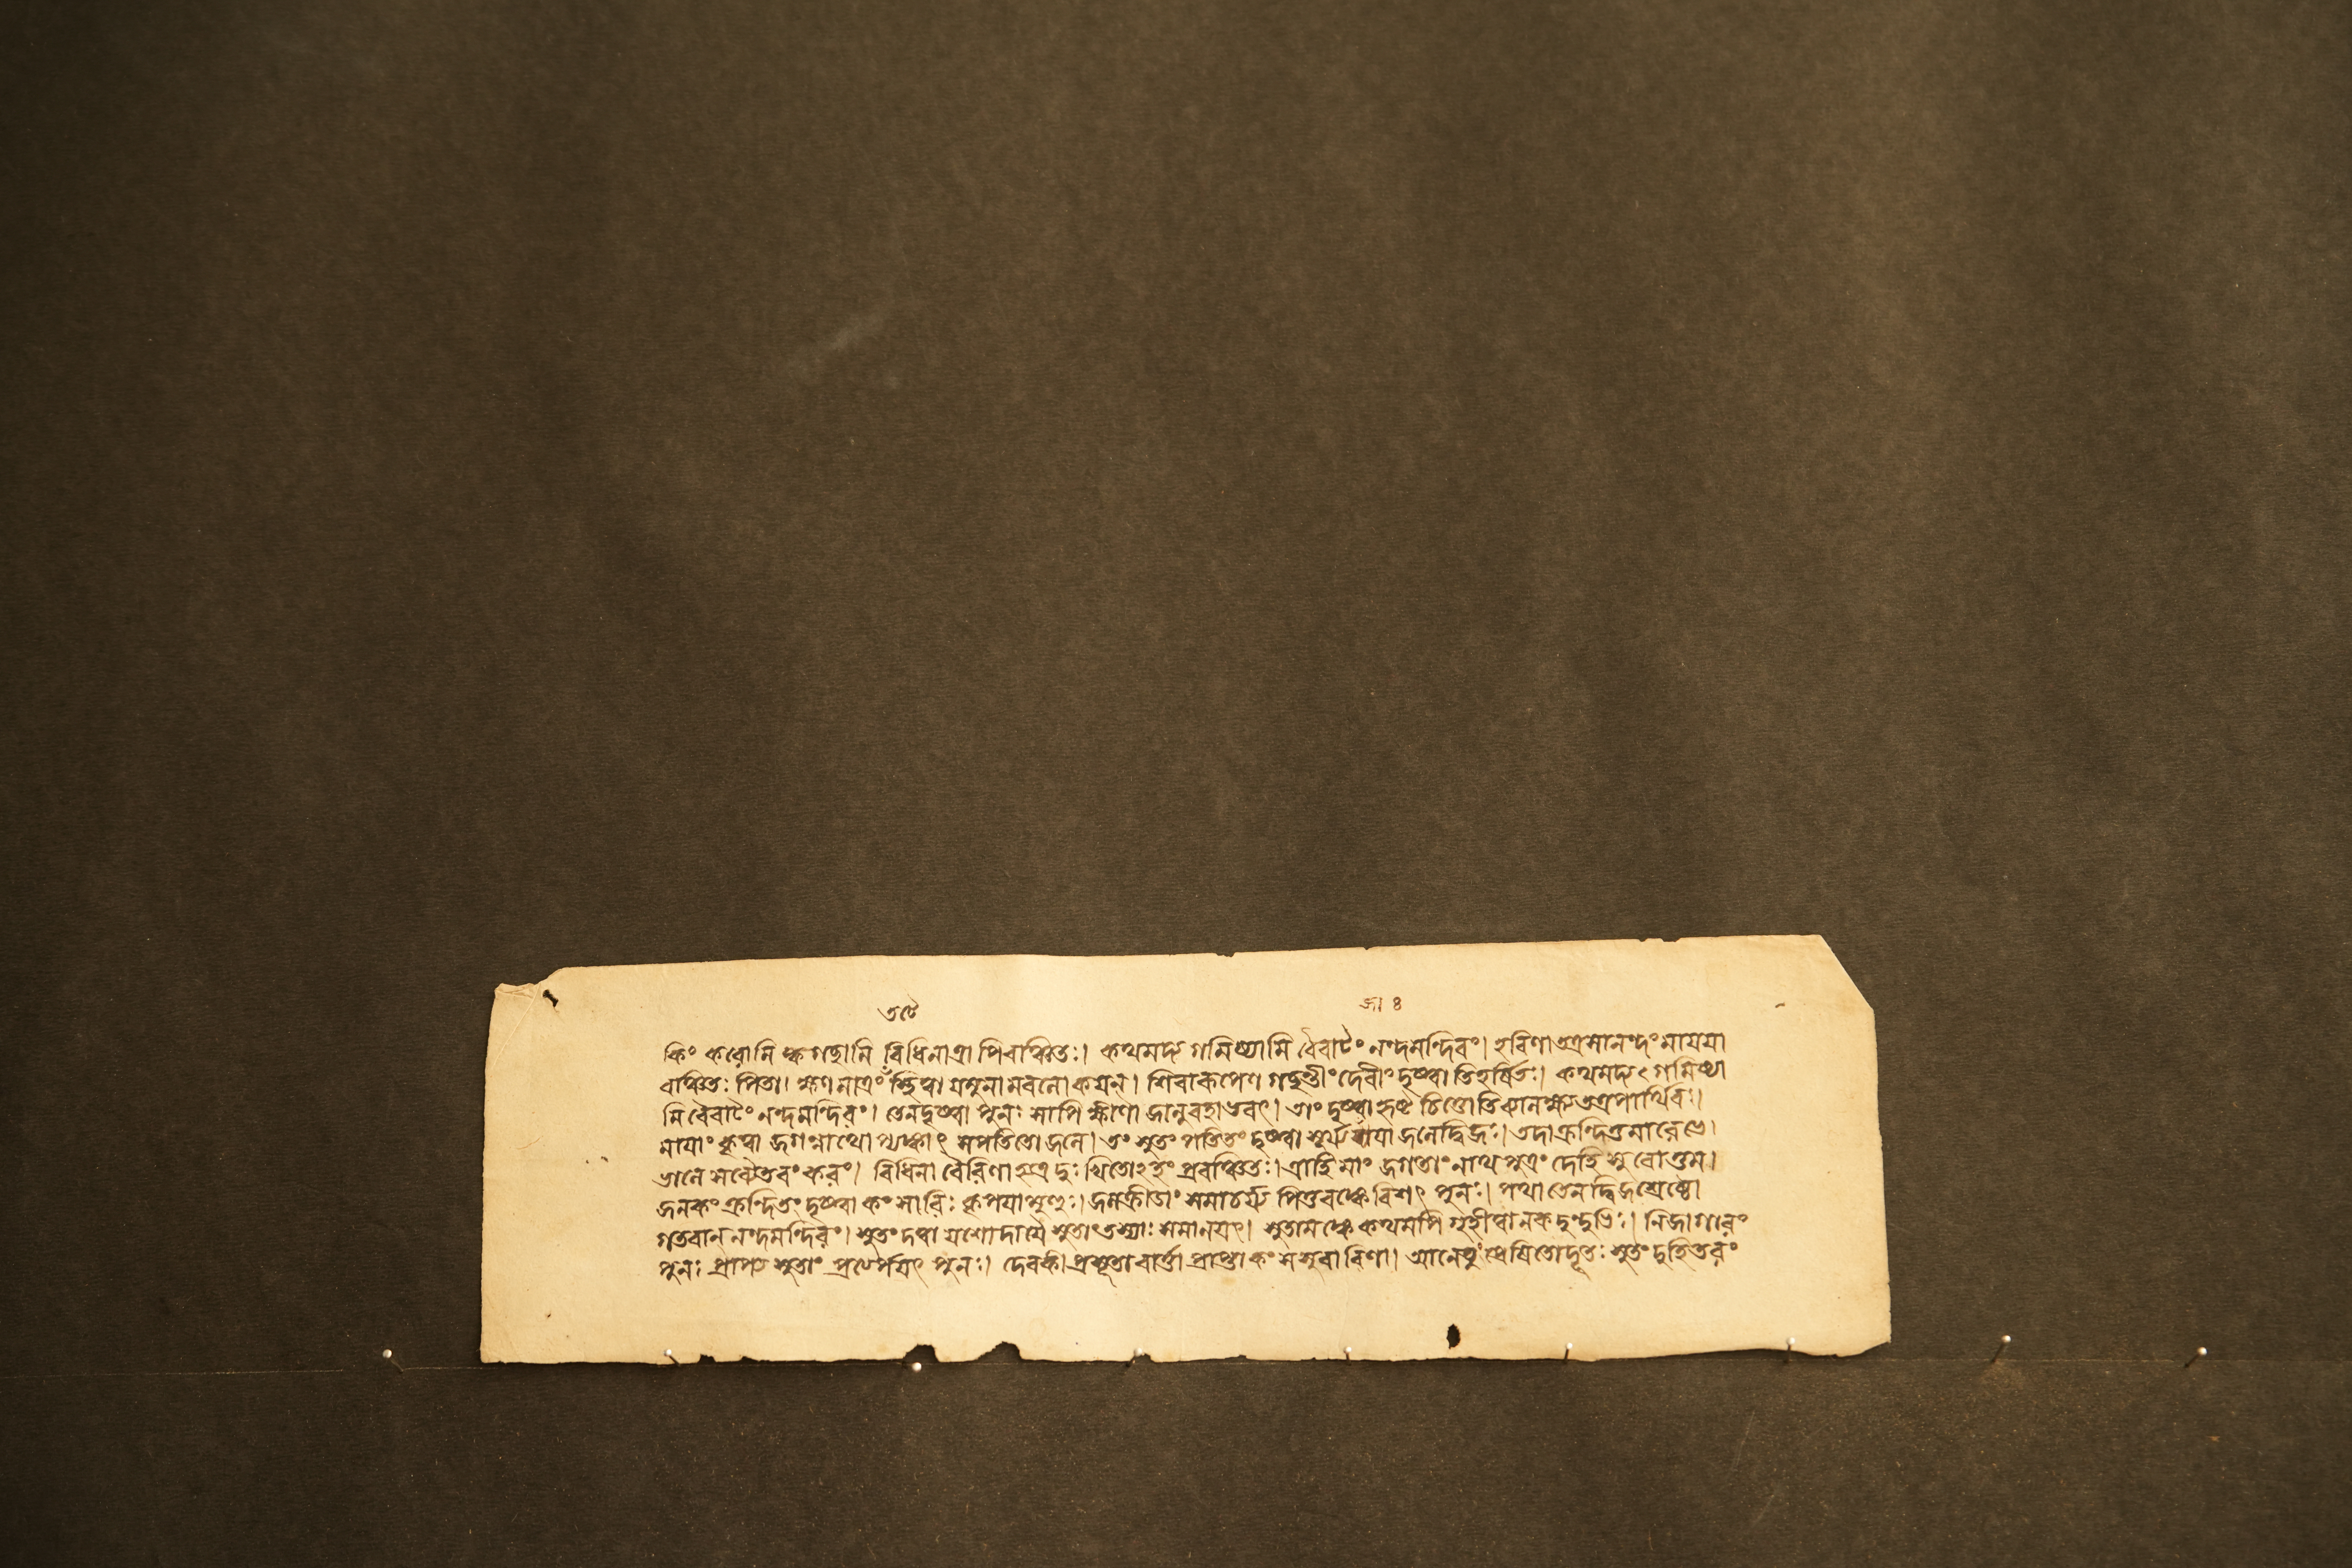 তটে
জা ৪
কিং করোমি ক্কগচ্ছামি বিধিনাত্রাপিবাঞ্চিতঃ। কথমদ্য গমিষ্যামি বৈরাটং নন্দমন্দিরং। হরিণাতত্রমানন্দং মায়য়া
বাঞ্চিতঃ পিতা। ক্ষণমাত্রং স্থিত্বা যমুনামবলোকয়ন্। শিবারূপেণ গচ্ছন্তীং দেবীং দৃষ্ট্বাতিহর্ষিতঃ। কথমদ্য গমিষ্যা
মি বৈরাটং নন্দমন্দিরং। তেনদৃষ্ট্বা পুনঃ সাপি ক্ষীণা জানুবহাভবৎ। তাং দৃষ্ট্বা হৃষ্ট চিত্তোতি
মায়াং কৃত্বা জগন্নাথো সপতিতো জলে। তং সুতং পতিতং দৃষ্ট্বা জলেদ্বিজঃ। তদাক্রন্দিতুমারেভে।
বিধিনা বৈরিণা হ্যত্র দুঃখিতোঽহং প্রবঞ্চিতঃ। ত্রাহি মাং জগতাং নাথ পুত্রং দেহি সুরোত্তম।
জনকং ক্রন্দিতং দৃষ্ট্বা কংসারিঃ কৃপয়া জলক্রীডাং সমাচর্য্য পিতুরঙ্কেবিশৎ পুনঃ। যথা তেনদ্বিজশ্রেষ্ঠো
গতবান্ নন্দমন্দিরং। সুতং দত্বা যশোদায়ৈ সুতাং তস্যাঃ সমানয়ৎ। সুতামঙ্কে কথমপি গৃহীত্বানকদুন্দুভিঃ। নিজাগারং
পুনঃ প্রাপ্য সুতাং পুনঃ। দেবকী প্রসূতা বার্ত্তা প্রাপ্তা কংসসুরারিণা। আনেতুং প্রেষিতোদূতঃ সুতং দুহিতরং